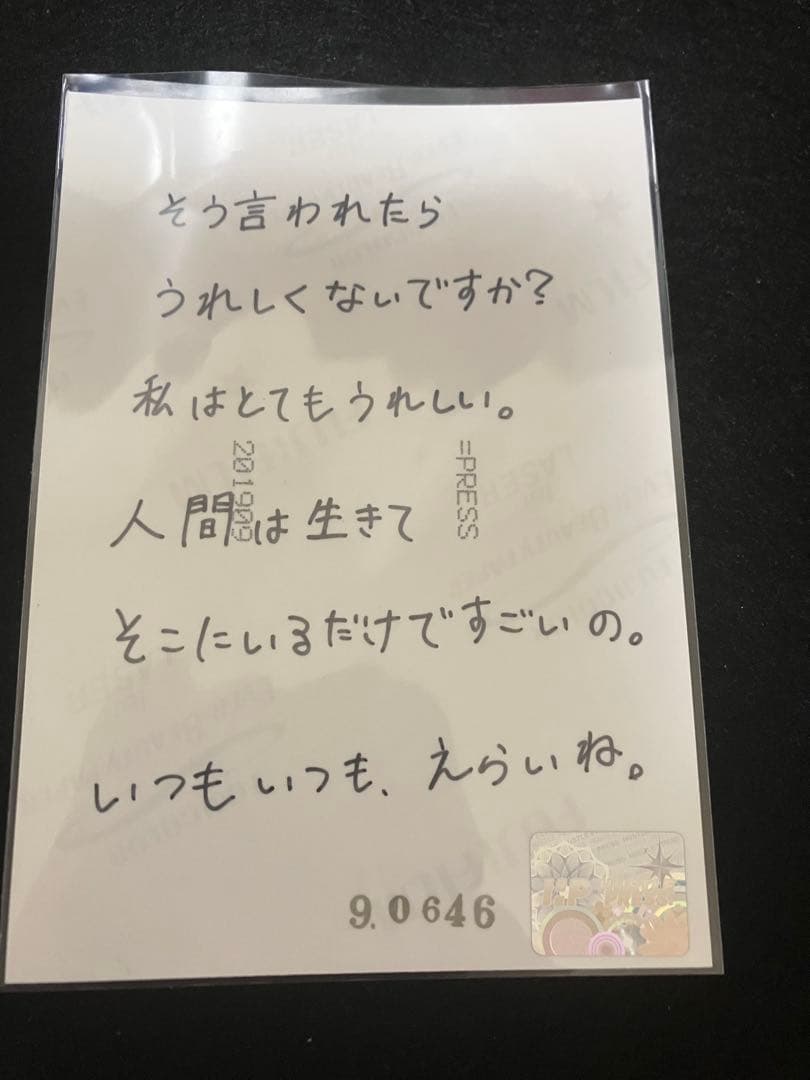 そう言われたら
うれしくないですか?
私はとてもうれしい。
201909
=PRESS
人間は生きて
そこにいるだけですごいの。
いつもいつも、えらいね。
9.0646